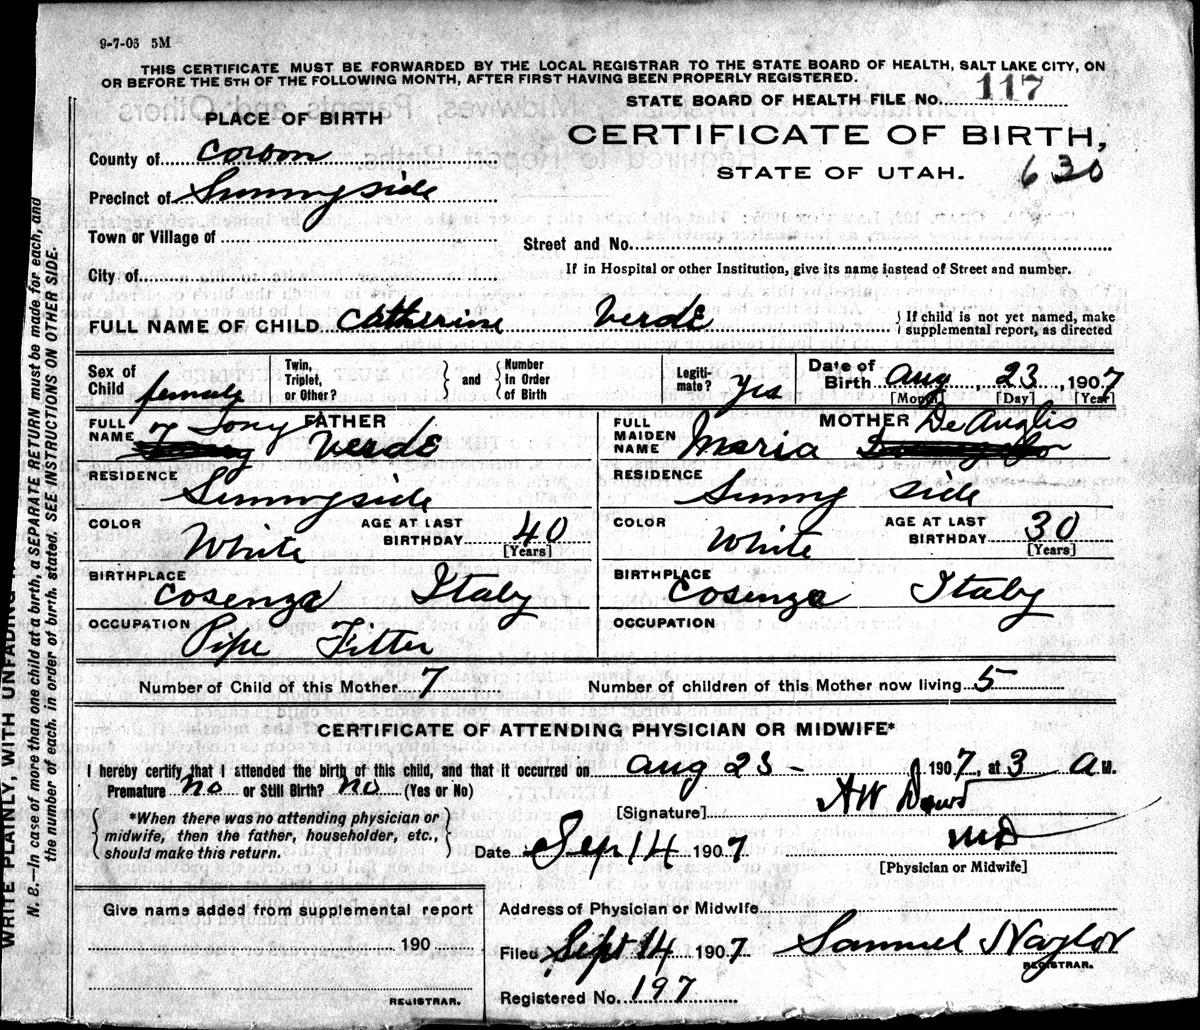 9-7-03 5M
THIS CERTIFICATE MUST BE FORWARDED BY THE LOCAL REGISTRAR TO THE STATE BOARD OF HEALTH, SALT LAKE CITY, ON
OR BEFORE THE 5TH OF THE FOLLOWING MONTH, AFTER FIRST HAVING BEEN PROPERLY REGISTERED.
STATE BOARD OF HEALTH FILE No. 117
PLACE OF BIRTH
CERTIFICATE OF BIRTH,
County of Corbon
STATE OF UTAH.
630
Precinct of Sunnyside
Town or Village of
Street and No.
City of
If in Hospital or other Institution, give its name instead of Street and number.
FULL NAME OF CHILD Catherine Verde { If child is not yet named, make
supplemental report, as directed
Sex of Child female Twin, Triplet, or Other? } and { Number In Order of Birth Legiti- mate? Yes Date of Birth Aug, 23, 1907
[Month] [Day] [Year]
FATHER
FULL NAME Tony Verde
MOTHER
FULL MAIDEN NAME Maria De Anglis
RESIDENCE Sunnyside
RESIDENCE Sunny side
COLOR White AGE AT LAST BIRTHDAY 40 [Years]
COLOR White AGE AT LAST BIRTHDAY 30 [Years]
BIRTHPLACE Cosenza Italy
BIRTHPLACE Cosenza Italy
OCCUPATION Pipe Fitter
OCCUPATION
Number of Child of this Mother 7 Number of children of this Mother now living 5
CERTIFICATE OF ATTENDING PHYSICIAN OR MIDWIFE*
I hereby certify that I attended the birth of this child, and that it occurred on Aug 23 - 1907, at 3 A M.
Premature No or Still Birth? No (Yes or No)
{ *When there was no attending physician or
midwife, then the father, householder, etc.,
should make this return. }
[Signature] AW Dowd
MD
Date Sep 14 1907
[Physician or Midwife]
Give name added from supplemental report
190
REGISTRAR.
Address of Physician or Midwife
Filed Sept 14 1907 Samuel Naylor
REGISTRAR.
Registered No. 197
WRITE PLAINLY, WITH UNFADING
N. B.—In case of more than one child at a birth, a SEPARATE RETURN must be made for each, and
the number of each, in order of birth, stated. SEE INSTRUCTIONS ON OTHER SIDE.